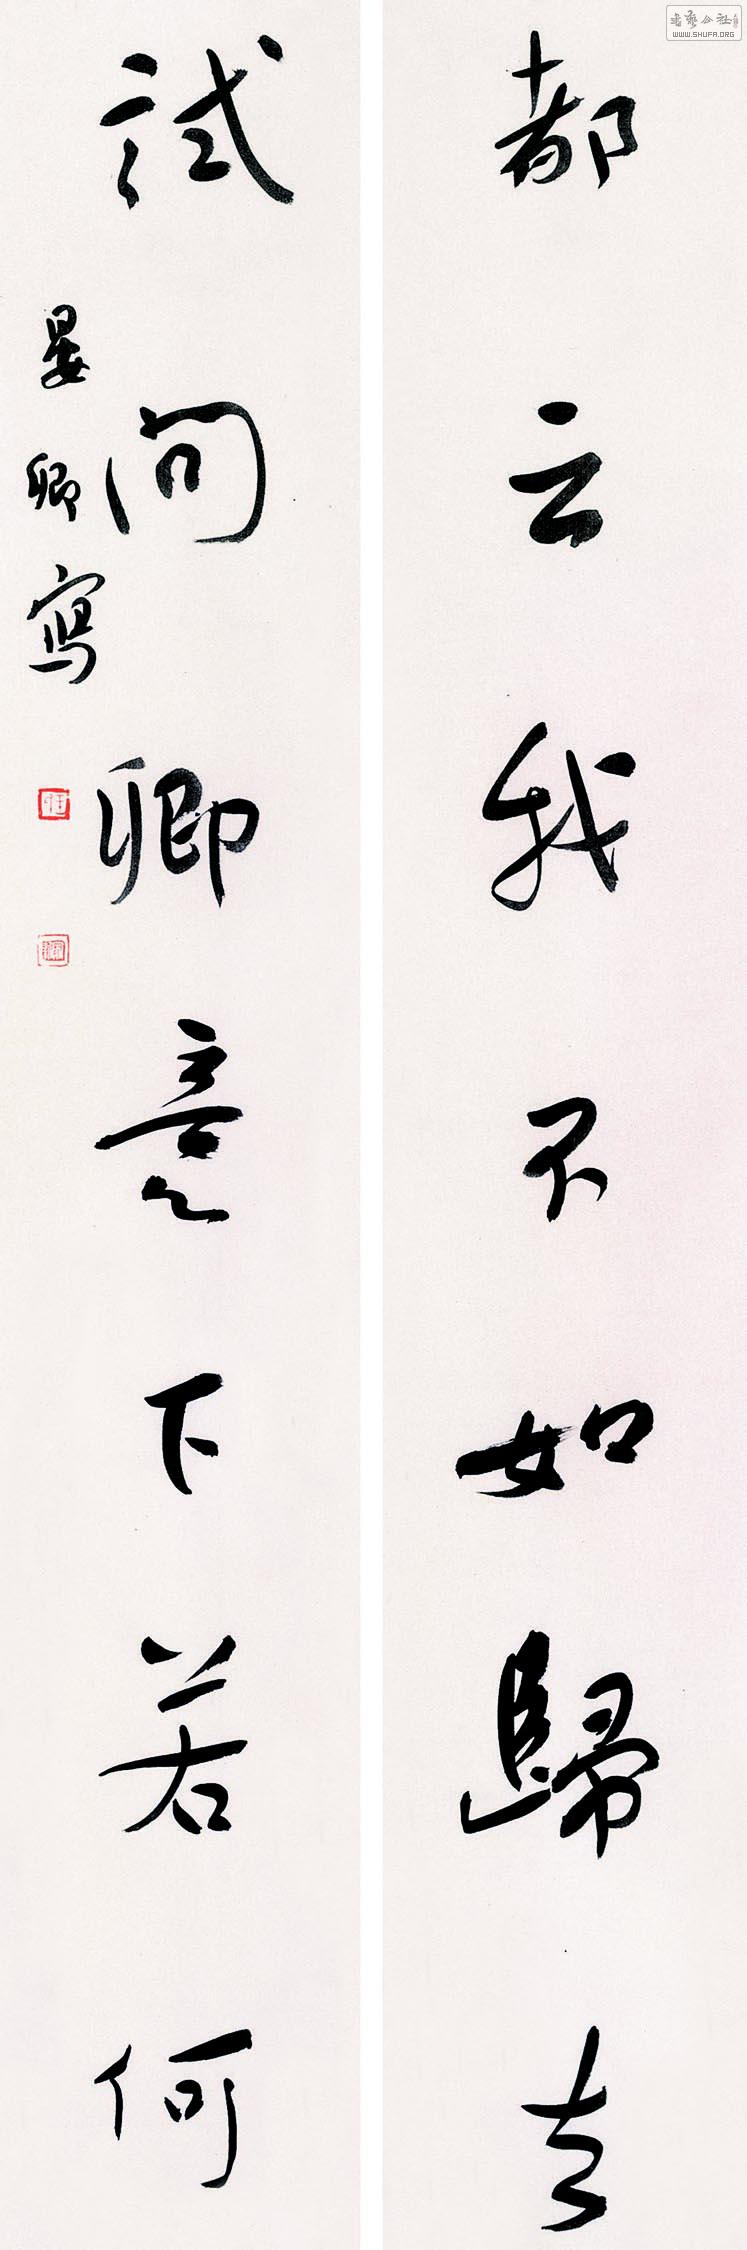 都云我不如歸去
試問卿意下若何
晏卿寫
書藝公社
WWW.SHUFA.ORG